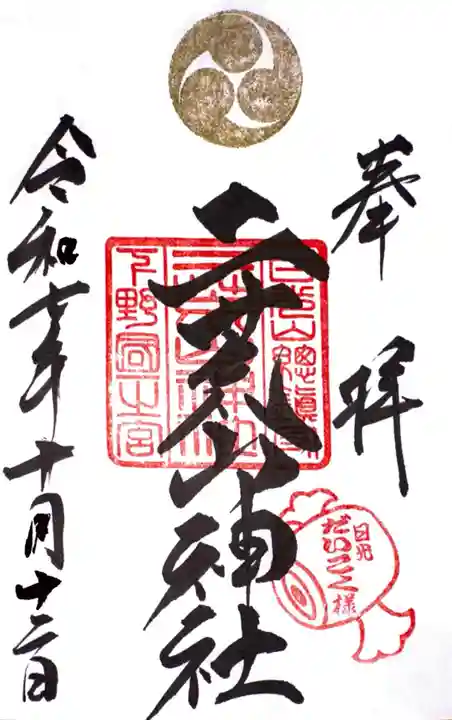 奉拝
二荒山神社
令和七年十月十二日
日光山總鎮守
二荒山神社
下野國一之宮
日光
だいこく様